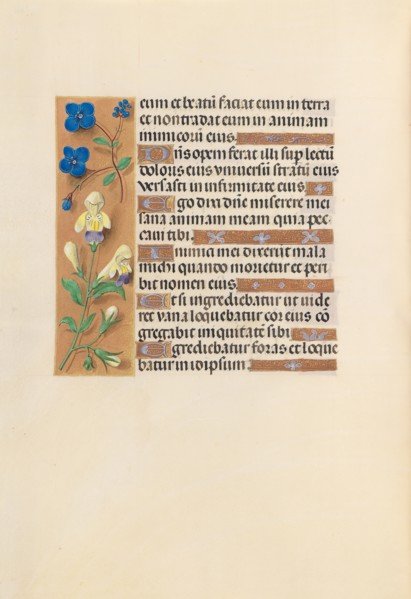 eum et beatū faciat eum in terra
et non tradat eum in animam
inimicorū eius.
Dn̄s opem ferat illi sup lectū
doloris eius universū stratū eius
versasti in infirmitate eius
Ego dixi dn̄e miserere mei
sana animam meam quia pec
cavi tibi.
Inimici mei dixerūt mala
michi quando morietur et peri
bit nomen eius.
Et si ingrediebatur ut vide
ret vana loquebatur cor eius cō
gregabit iniquitatē sibi
Egrediebatur foras et loque
batur in idipsum.